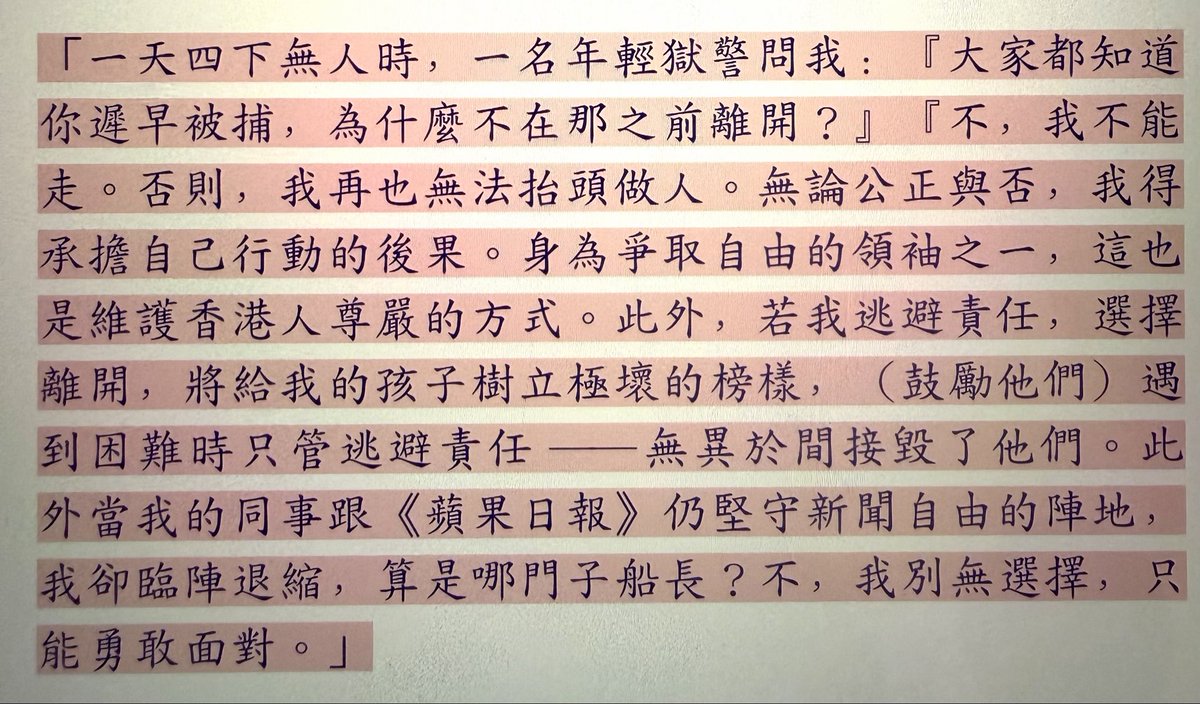 「一天四下無人時，一名年輕獄警問我：『大家都知道
你遲早被捕，為什麼不在那之前離開？』『不，我不能
走。否則，我再也無法抬頭做人。無論公正與否，我得
承擔自己行動的後果。身為爭取自由的領袖之一，這也
是維護香港人尊嚴的方式。此外，若我逃避責任，選擇
離開，將給我的孩子樹立極壞的榜樣，（鼓勵他們）遇
到困難時只管逃避責任——無異於間接毀了他們。此
外當我的同事跟《蘋果日報》仍堅守新聞自由的陣地，
我卻臨陣退縮，算是哪門子船長？不，我別無選擇，只
能勇敢面對。」